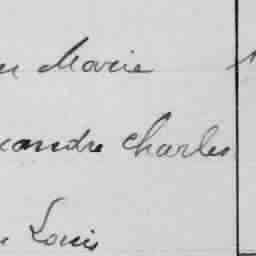 Marie
xandre Charles
Louis